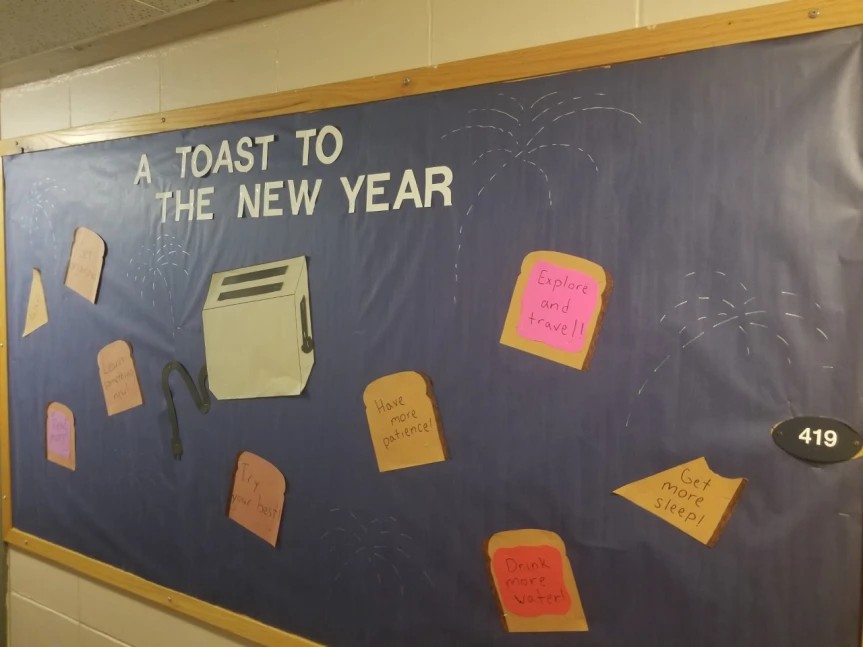 A TOAST TO
THE NEW YEAR
Explore
and
travel!
Have
more
patience!
419
Get
more
sleep!
Try
your best
Drink
more
water!
Learn
something
new!